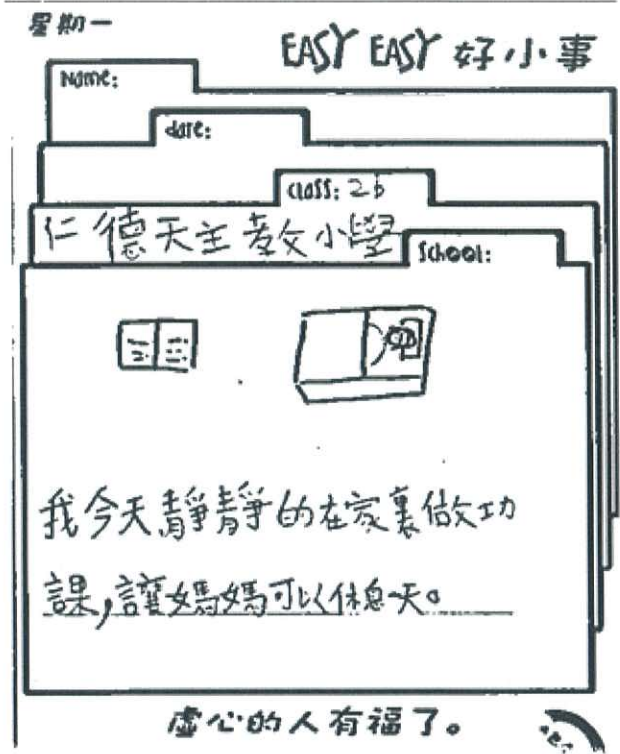 星期一
EASY EASY 好小事
Name:
date:
Class: 2b
仁德天主教小學
School:
我今天靜靜的在家裏做功
課,讓媽媽可以休息一天。
虛心的人有福了。